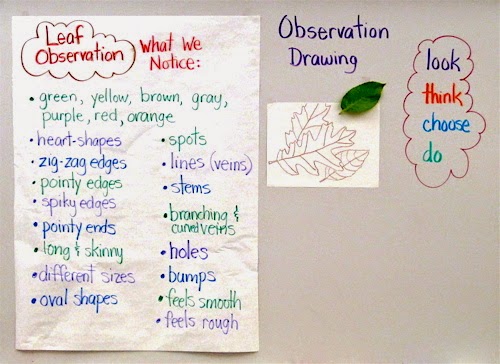 Leaf
Observation
What We
Notice:
• green, yellow, brown, gray,
purple, red, orange
• heart-shapes
• zig-zag edges
• pointy edges
• spiky edges
• pointy ends
• long & skinny
• different sizes
• oval shapes
• spots
• lines (veins)
• stems
• branching &
curved veins
• holes
• bumps
• feels smooth
• feels rough
Observation
Drawing
look
think
choose
do